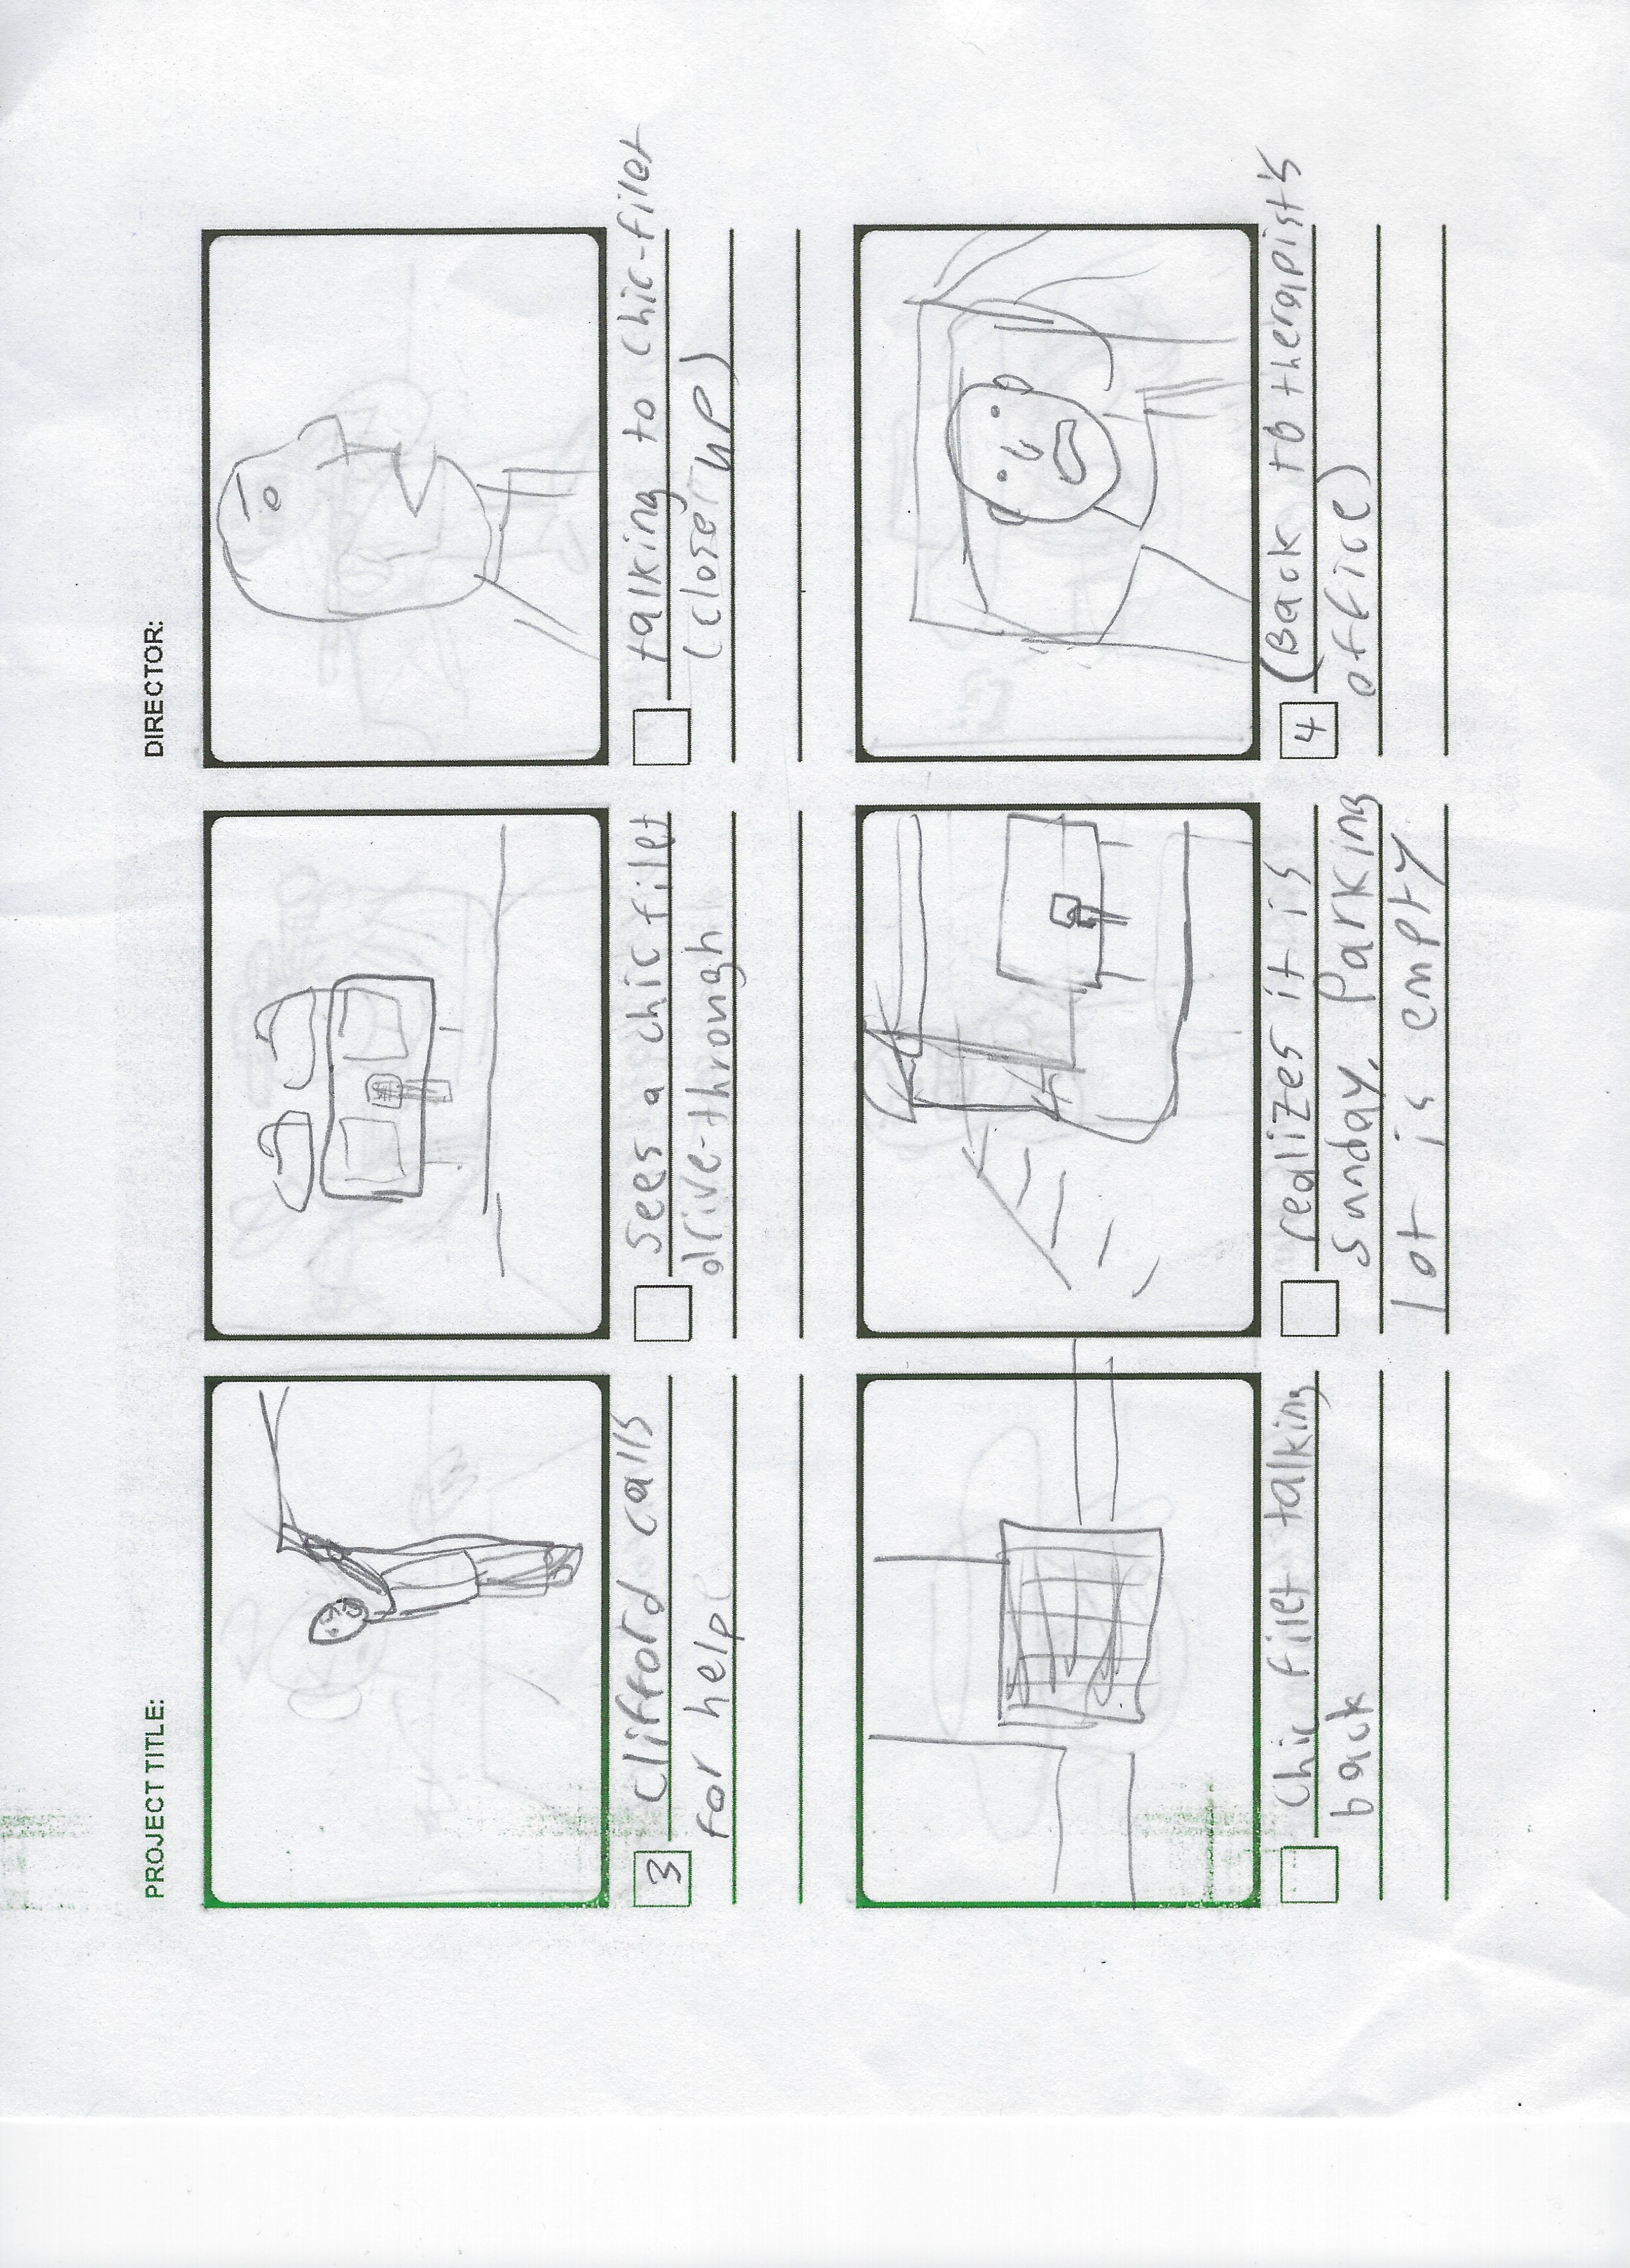 PROJECT TITLE:
DIRECTOR:
3
Clifford calls
for help
sees a chic filet
drive-through
talking to chic-filet
(closer up)
Chic filet talking
back
realizes it is
sunday. Parking
lot is empty
4
(Back to therapist's
office)